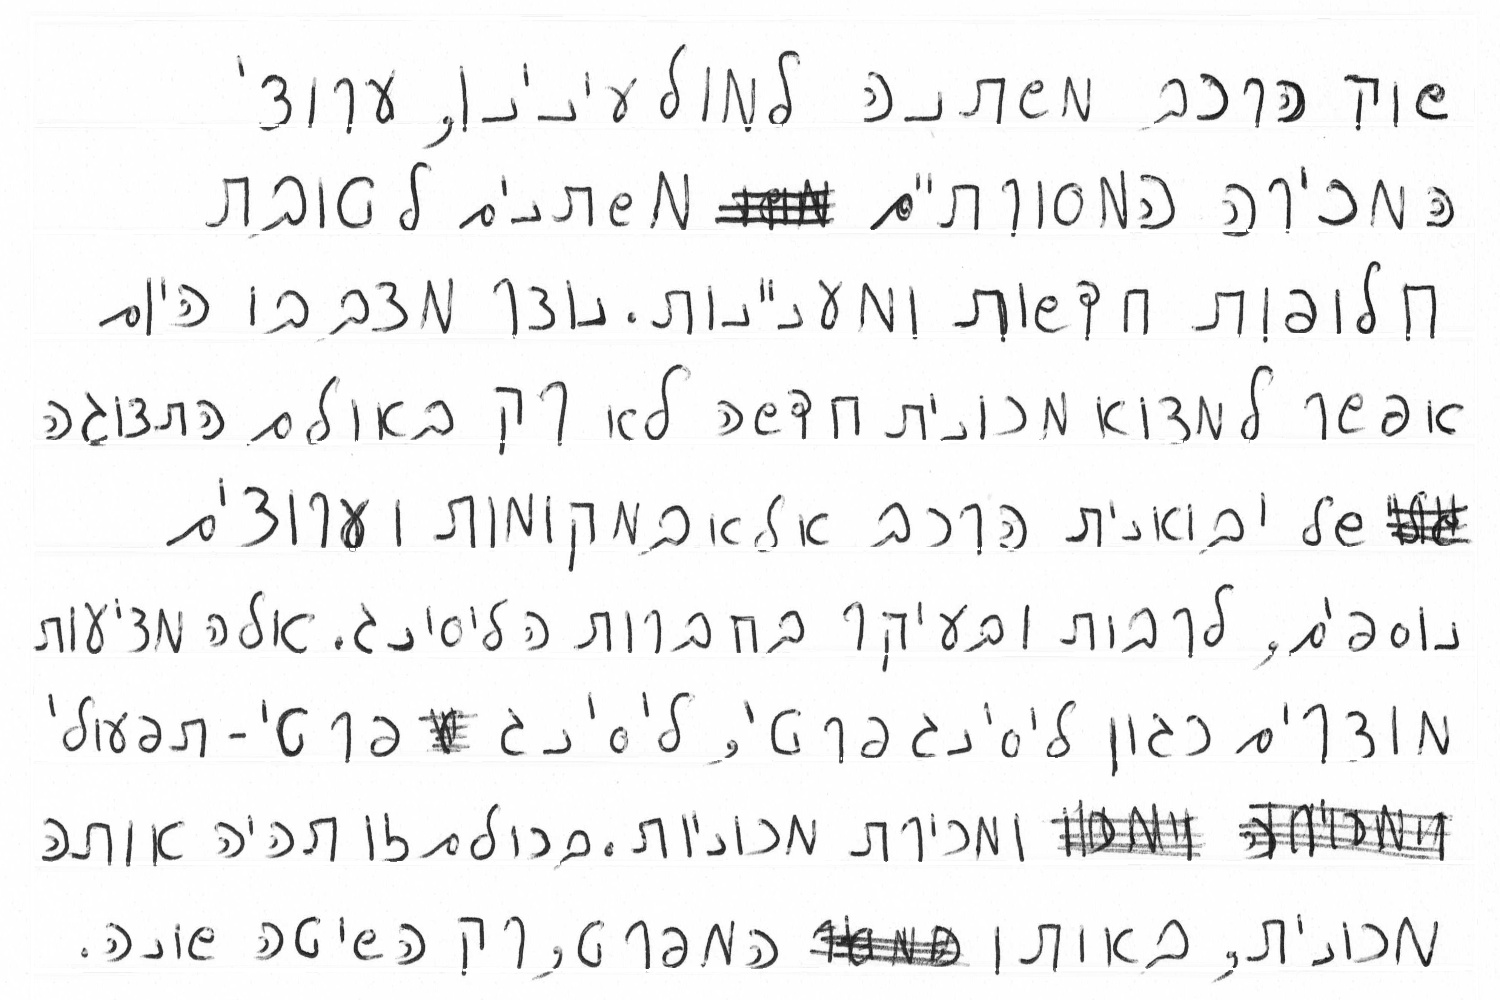 שוק הרכב משתנה למול עינינו, ערוצי
המכירה המסורתיים משתנים לטובת
חלופות חדשות ומעניינות. נוצר מצב בו היום
אפשר למצוא מכונית חדשה לא רק באולם התצוגה
של יבואנית הרכב אלא במקומות וערוצים
נוספים, לרבות ובעיקר בחברות הליסינג. אלה מציעות
מוצרים כגון ליסינג פרטי, ליסינג פרטי-תפעולי
ומכירת מכוניות. בכולם זו תהיה אותה
מכונית, באותו המפרט, רק השיטה שונה.